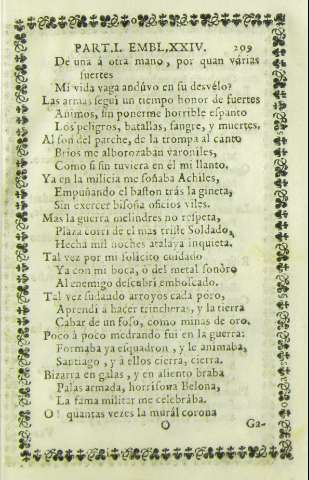 PART.I. EMBL,XXIV. 209
De una à otra mano, por quan várias
suertes
Mi vida vaga andúvo en su desvélo?
Las armas segui un tiempo honor de fuertes
Animos, sin ponerme horrible espanto
Los peligros, batallas, sangre, y muertes.
Al son del parche, de la trompa al canto
Brios me alborozaban varoniles,
Como si sin tuviera en él mi llanto.
Ya en la milicia me soñaba Achiles,
Empuñando el baston trás la gineta,
Sin exercer bisoña oficios viles.
Mas la guerra melindres no respeta,
Plaza corri de el mas triste Soldado,
Hecha mil noches atalaya inquieta.
Tal vez por mi solicito cuidado
Ya con mi boca, ò del metal sonòro
Al enemigo descubri emboscado.
Tal vez sudando arroyos cada poro,
Aprendi à hacer trincheras, y la tierra
Cabar de un foso, como minas de oro.
Poco à poco medrando fui en la guerra:
Formaba ya esquadron, y le animaba,
Santiago, y à ellos cierra, cierra.
Bizarra en galas, y en aliento braba
Palas armada, horrisona Belona,
La fama militar me celebrába.
O! quantas vezes la murál corona
O Ga-